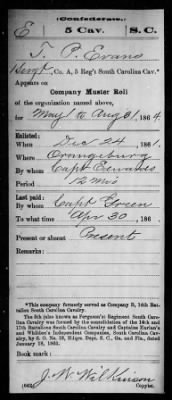 (Confederate.)
E 5 Cav. S. C.
T. P. Evans
Sergt, Co. A, 5 Reg't South Carolina Cav.*
Appears on
Company Muster Roll
of the organization named above,
for May to Aug 31, 1864.
Enlisted:
When Dec 24, 1861.
Where Orangeburg
By whom Capt Edwards
Period 12 mos
Last paid:
By whom Capt Green
To what time Apr 30, 186
Present or absent Present
Remarks:
*This company formerly served as Company B, 14th Battalion South Carolina Cavalry.
The 5th (also known as Ferguson's) Regiment South Carolina Cavalry was formed by the consolidation of the 14th and 17th Battalions South Carolina Cavalry and Captains Harlan's and Whilden's Independent Companies, South Carolina Cavalry, by S. O. No. 18, Hdqrs. Dept. S. C., Ga. and Fla., dated January 18, 1863.
Book mark:
J. W. Wilkinson
(642) Copyist.